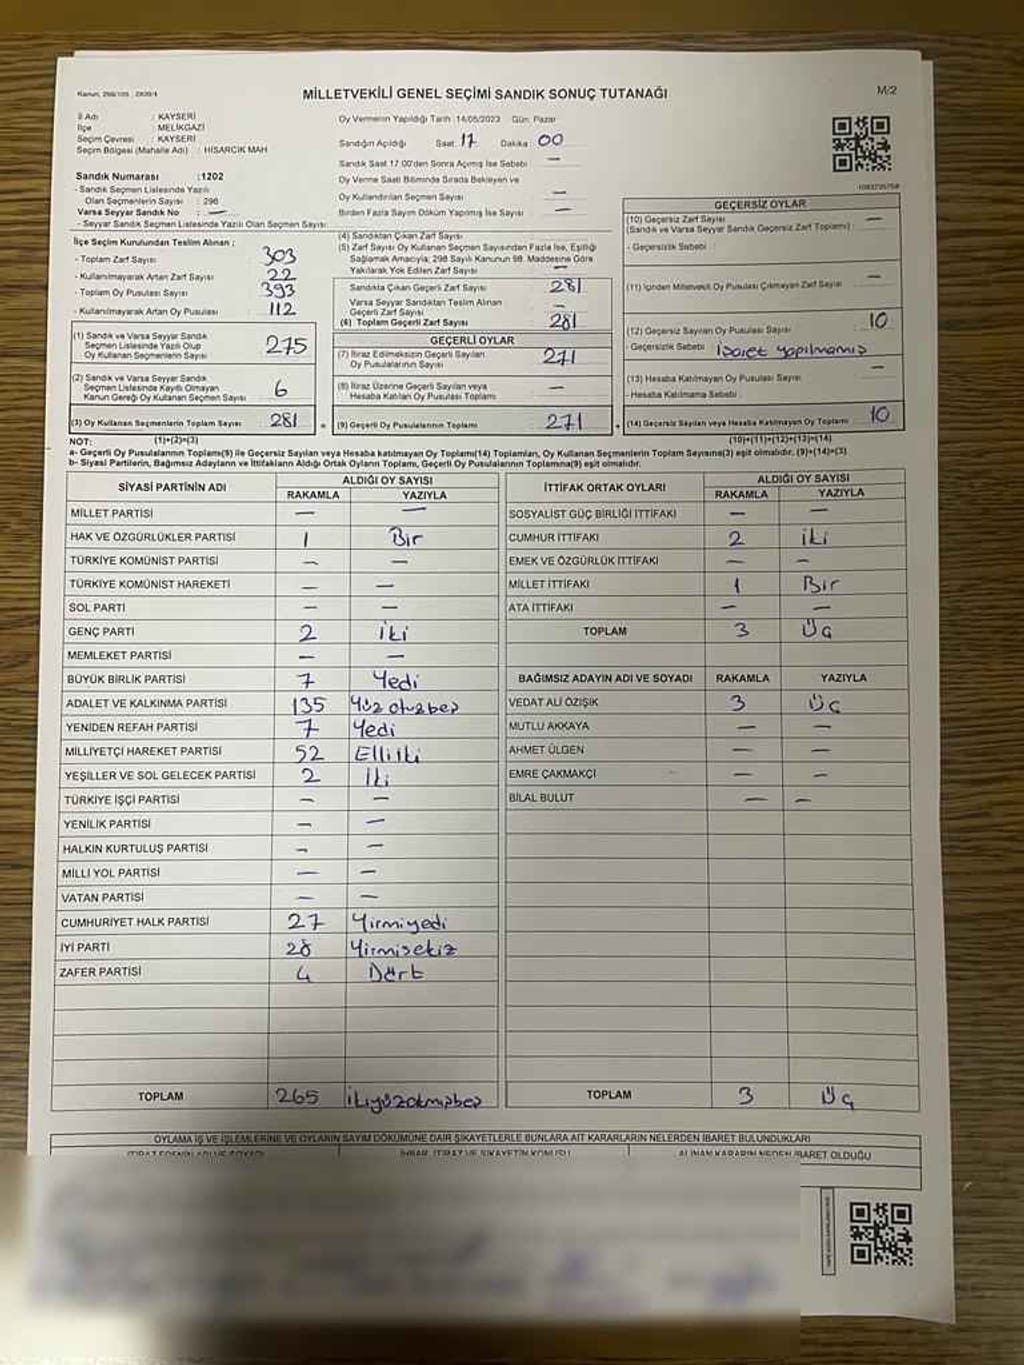 Kanun, 298/105 : 2839/1
MİLLETVEKİLİ GENEL SEÇİMİ SANDIK SONUÇ TUTANAĞI
M/2
İl Adı : KAYSERİ
İlçe : MELİKGAZİ
Seçim Çevresi : KAYSERİ
Seçim Bölgesi (Mahalle Adı) : HİSARCIK MAH
Sandık Numarası :1202
- Sandık Seçmen Listesinde Yazılı
Olan Seçmenlerin Sayısı : 298
Varsa Seyyar Sandık No : —
- Seyyar Sandık Seçmen Listesinde Yazılı Olan Seçmen Sayısı:
İlçe Seçim Kurulundan Teslim Alınan ;
- Toplam Zarf Sayısı 303
- Kullanılmayarak Artan Zarf Sayısı 22
- Toplam Oy Pusulası Sayısı 393
- Kullanılmayarak Artan Oy Pusulası 112
(1) Sandık ve Varsa Seyyar Sandık
Seçmen Listesinde Yazılı Olup
Oy Kullanan Seçmenlerin Sayısı 275
(2) Sandık ve Varsa Seyyar Sandık
Seçmen Listesinde Kayıtlı Olmayan
Kanun Gereği Oy Kullanan Seçmen Sayısı 6
(3) Oy Kullanan Seçmenlerin Toplam Sayısı 281 =
Oy Vermenin Yapıldığı Tarih :14/05/2023 Gün: Pazar
Sandığın Açıldığı Saat: 17 Dakika : 00
Sandık Saat 17:00'den Sonra Açılmış İse Sebebi : —
Oy Verme Saati Bitiminde Sırada Bekleyen ve
Oy Kullandırılan Seçmen Sayısı : —
Birden Fazla Sayım Döküm Yapılmış İse Sayısı : —
(4) Sandıktan Çıkan Zarf Sayısı
(5) Zarf Sayısı Oy Kullanan Seçmen Sayısından Fazla İse, Eşitliği
Sağlamak Amacıyla; 298 Sayılı Kanunun 98. Maddesine Göre
Yakılarak Yok Edilen Zarf Sayısı : —
Sandıkta Çıkan Geçerli Zarf Sayısı 281
Varsa Seyyar Sandıktan Teslim Alınan
Geçerli Zarf Sayısı —
(6) Toplam Geçerli Zarf Sayısı 281
GEÇERLİ OYLAR
(7) İtiraz Edilmeksizin Geçerli Sayılan
Oy Pusulalarının Sayısı 271
(8) İtiraz Üzerine Geçerli Sayılan veya
Hesaba Katılan Oy Pusulası Toplamı —
(9) Geçerli Oy Pusulalarının Toplamı 271 +
GEÇERSİZ OYLAR
(10) Geçersiz Zarf Sayısı —
(Sandık ve Varsa Seyyar Sandık Geçersiz Zarf Toplamı) :
- Geçersizlik Sebebi :
(11) İçinden Milletvekili Oy Pusulası Çıkmayan Zarf Sayısı : —
(12) Geçersiz Sayılan Oy Pusulası Sayısı : 10
- Geçersizlik Sebebi : İşaret yapılmamış
(13) Hesaba Katılmayan Oy Pusulası Sayısı : —
- Hesaba Katılmama Sebebi :
(14) Geçersiz Sayılan veya Hesaba Katılmayan Oy Toplamı : 10
NOT: (1)+(2)=(3) (10)+(11)+(12)+(13)=(14)
a- Geçerli Oy Pusulalarının Toplamı(9) ile Geçersiz Sayılan veya Hesaba katılmayan Oy Toplamı(14) Toplamları, Oy Kullanan Seçmenlerin Toplam Sayısına(3) eşit olmalıdır. (9)+(14)=(3)
b- Siyasi Partilerin, Bağımsız Adayların ve İttifakların Aldığı Ortak Oyların Toplamı, Geçerli Oy Pusulalarının Toplamına(9) eşit olmalıdır.
SİYASİ PARTİNİN ADI ALDIĞI OY SAYISI
RAKAMLA YAZIYLA
MİLLET PARTİSİ — —
HAK VE ÖZGÜRLÜKLER PARTİSİ 1 Bir
TÜRKİYE KOMÜNİST PARTİSİ — —
TÜRKİYE KOMÜNİST HAREKETİ — —
SOL PARTİ — —
GENÇ PARTİ 2 İki
MEMLEKET PARTİSİ — —
BÜYÜK BİRLİK PARTİSİ 7 Yedi
ADALET VE KALKINMA PARTİSİ 135 Yüz otuzbeş
YENİDEN REFAH PARTİSİ 7 Yedi
MİLLİYETÇİ HAREKET PARTİSİ 52 Elliiki
YEŞİLLER VE SOL GELECEK PARTİSİ 2 İki
TÜRKİYE İŞÇİ PARTİSİ — —
YENİLİK PARTİSİ — —
HALKIN KURTULUŞ PARTİSİ — —
MİLLİ YOL PARTİSİ — —
VATAN PARTİSİ — —
CUMHURİYET HALK PARTİSİ 27 Yirmiyedi
İYİ PARTİ 28 Yirmisekiz
ZAFER PARTİSİ 4 Dört
TOPLAM 265 İkiyüzatmışbeş
İTTİFAK ORTAK OYLARI ALDIĞI OY SAYISI
RAKAMLA YAZIYLA
SOSYALİST GÜÇ BİRLİĞİ İTTİFAKI — —
CUMHUR İTTİFAKI 2 iki
EMEK VE ÖZGÜRLÜK İTTİFAKI — —
MİLLET İTTİFAKI 1 Bir
ATA İTTİFAKI — —
TOPLAM 3 Üç
BAĞIMSIZ ADAYIN ADI VE SOYADI RAKAMLA YAZIYLA
VEDAT ALİ ÖZIŞIK 3 Üç
MUTLU AKKAYA — —
AHMET ÜLGEN — —
EMRE ÇAKMAKÇI — —
BİLAL BULUT — —
TOPLAM 3 Üç
OYLAMA İŞ VE İŞLEMLERİNE VE OYLARIN SAYIM DÖKÜMÜNE DAİR ŞİKAYETLERLE BUNLARA AİT KARARLARIN NELERDEN İBARET BULUNDUKLARI
İTİRAZ EDENİN ADI VE SOYADI İHBAR, İTİRAZ VE ŞİKAYETİN KONUSU ALINAN KARARIN NEDEN İBARET OLDUĞU